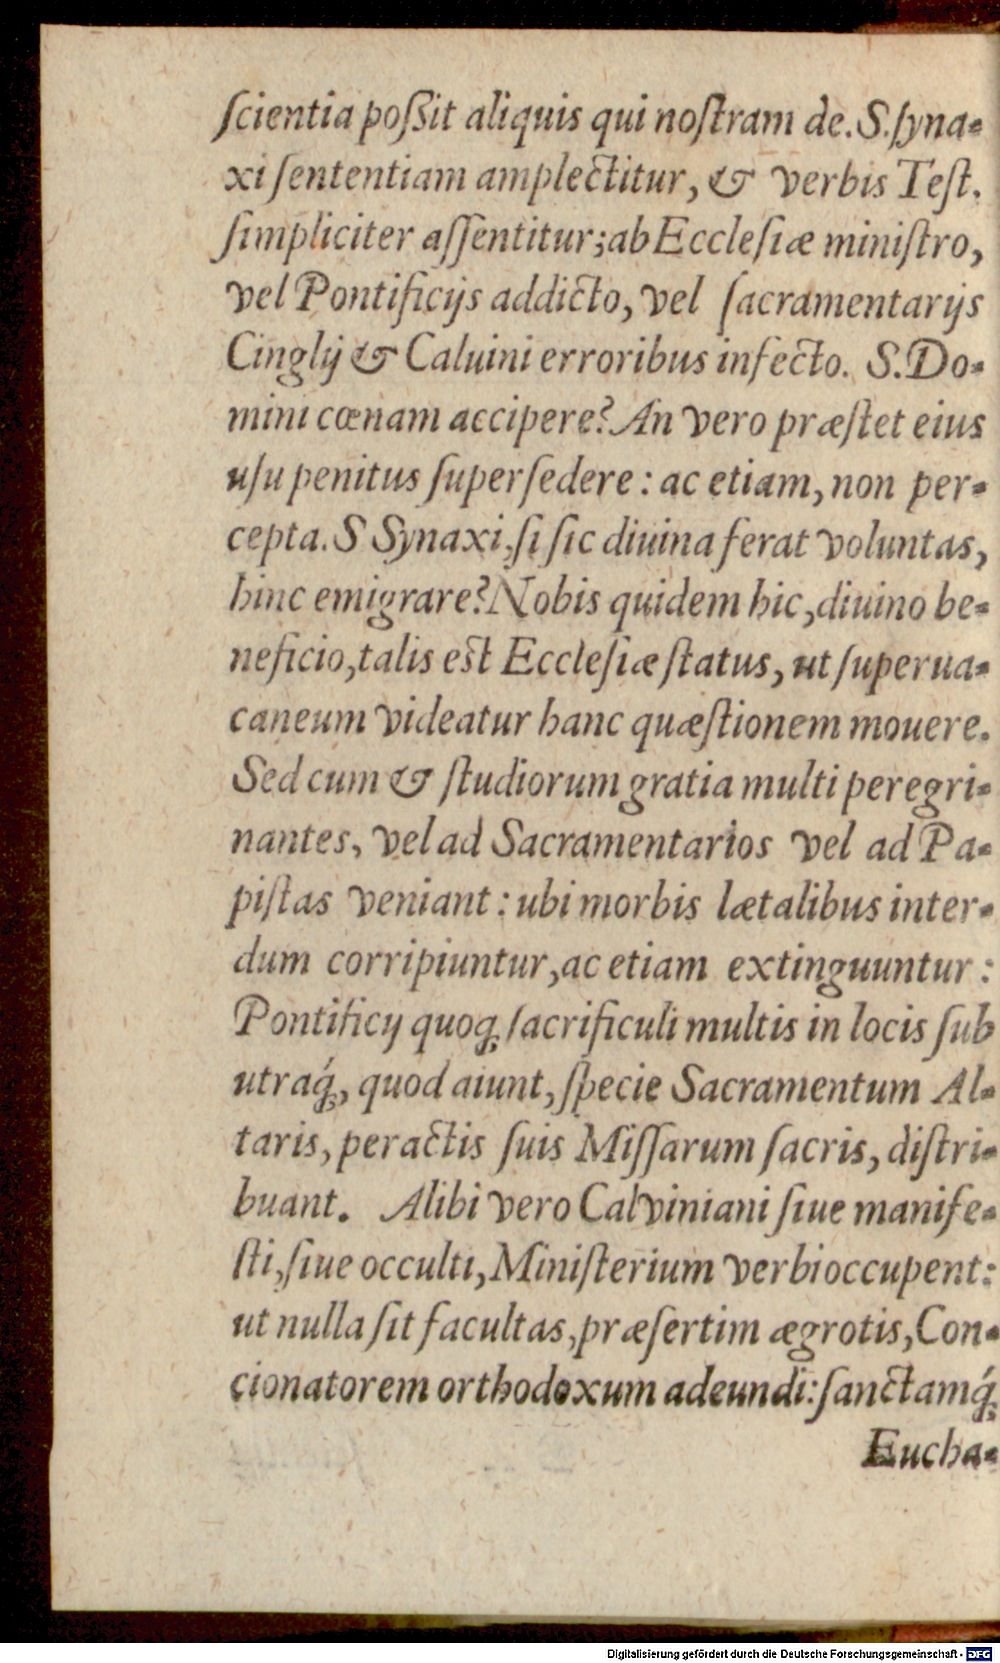 ſcientia poßit aliquis qui noſtram de. S. ſyna-
xi ſententiam amplectitur, & verbis Teſt.
ſimpliciter aſſentitur; ab Eccleſiæ miniſtro,
vel Pontificijs addicto, vel ſacramentarijs
Cinglij & Caluini erroribus infecto. S. Do-
mini cœnam accipere? An vero præſtet eius
uſu penitus ſuperſedere: ac etiam, non per-
cepta. S Synaxi, ſi ſic diuina ferat voluntas,
hinc emigrare? Nobis quidem hic, diuino be-
neficio, talis est Eccleſiæ ſtatus, ut ſuperua-
caneum videatur hanc quæſtionem mouere.
Sed cum & ſtudiorum gratia multi peregri-
nantes, vel ad Sacramentarios vel ad Pa-
piſtas veniant: ubi morbis lætalibus inter-
dum corripiuntur, ac etiam extinguuntur:
Pontificij quoqꝫ ſacrificuli multis in locis ſub
utraq́ꝫ, quod aiunt, ſpecie Sacramentum Al-
taris, peractis ſuis Miſſarum ſacris, diſtri-
buant. Alibi vero Calviniani ſiue manife-
ſti, ſiue occulti, Miniſterium verbi occupent:
ut nulla ſit facultas, præſertim ægrotis, Con-
cionatorem orthodoxum adeundi: ſanctamq́ꝫ
Eucha-
Digitalisierung gefördert durch die Deutsche Forschungsgemeinschaft - DFG